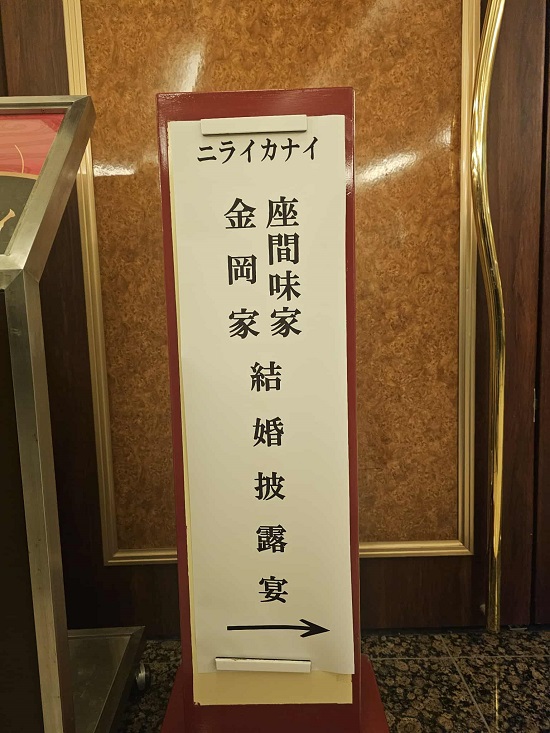 ニライカナイ
座間味家
金岡家
結婚披露宴